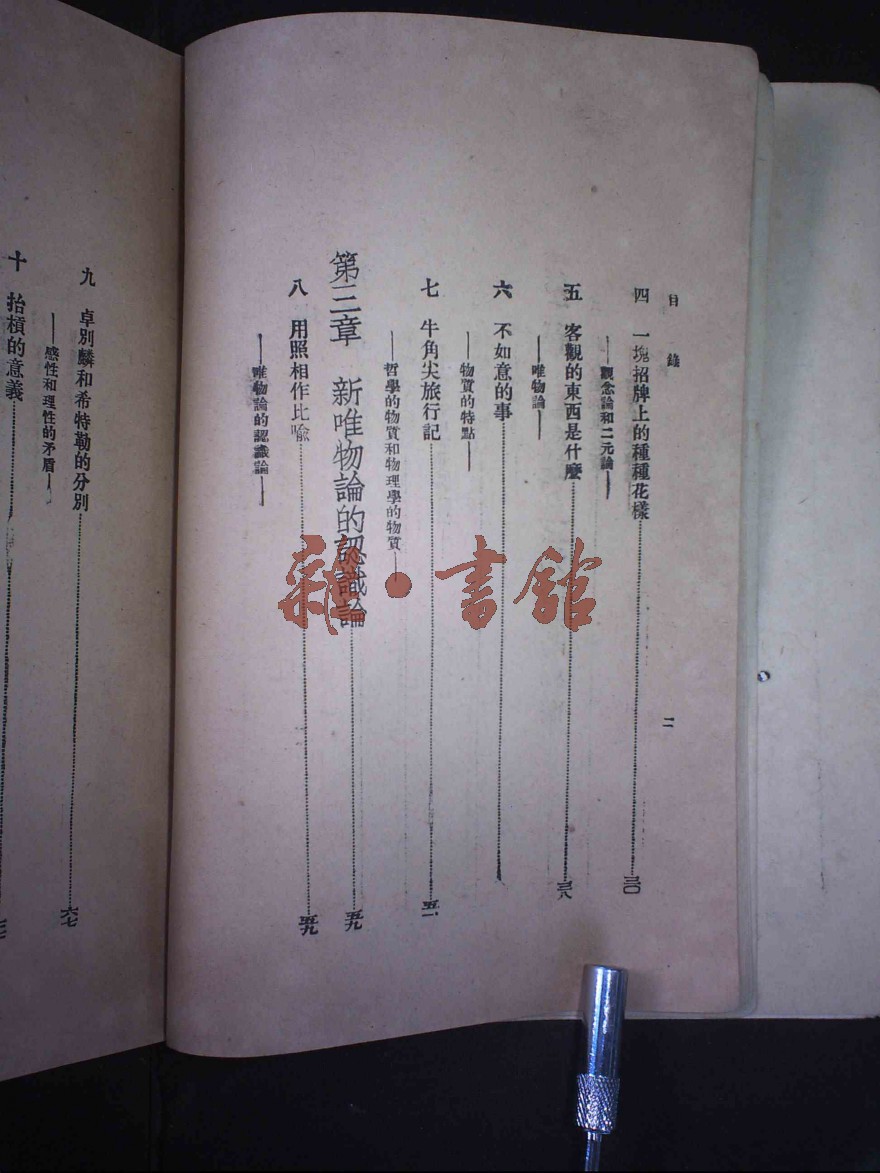 目錄
二
四 一塊招牌上的種種花樣……三〇
——觀念論和二元論——
五 客觀的東西是什麼……三八
——唯物論——
六 不如意的事……
——物質的特點——
七 牛角尖旅行記……五一
——哲學的物質和物理學的物質——
第三章 新唯物論的認識論……五九
八 用照相作比喩……五九
——唯物論的認識論——
九 卓別麟和希特勒的分別……六七
——感性和理性的矛盾——
十 抬槓的意義……
雜·書館